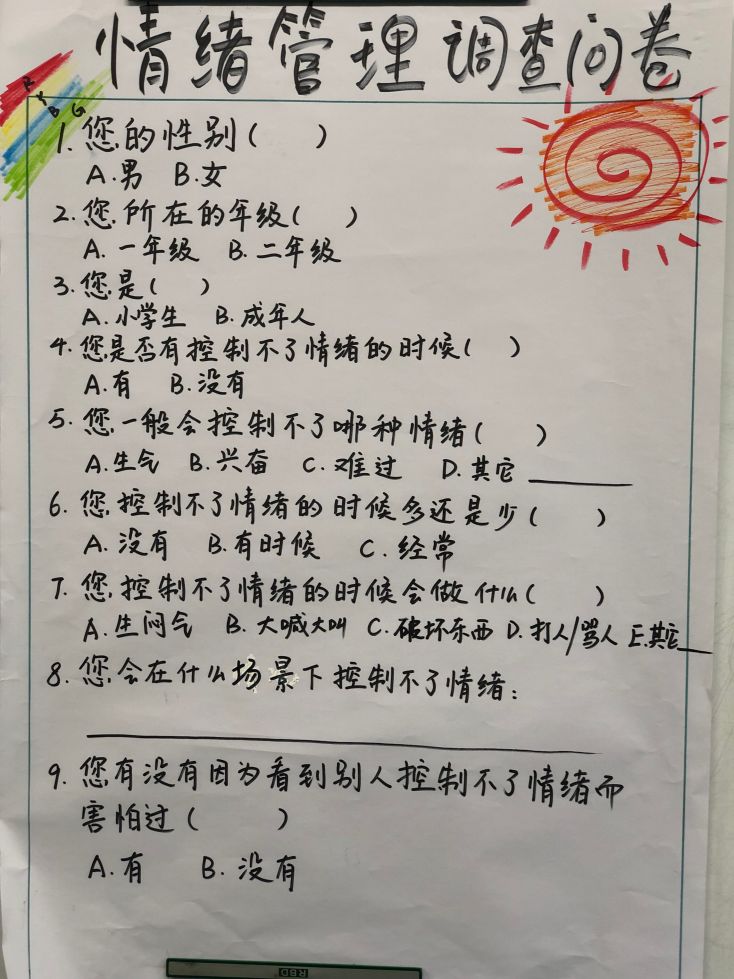 情绪管理调查问卷
R
Y
B
G
1. 您的性别(  )
A.男 B.女
2. 您所在的年级(  )
A. 一年级 B. 二年级
3. 您是(  )
A.小学生 B.成年人
4. 您是否有控制不了情绪的时候(  )
A.有 B.没有
5. 您一般会控制不了哪种情绪(  )
A.生气 B.兴奋 C.难过 D.其它______
6. 您控制不了情绪的时候多还是少(  )
A. 没有 B.有时候 C. 经常
7. 您控制不了情绪的时候会做什么(  )
A.生闷气 B. 大喊大叫 C.破坏东西 D.打人/骂人 E.其它__
8. 您会在什么场景下控制不了情绪:
9. 您有没有因为看到别人控制不了情绪而
害怕过(  )
A.有 B. 没有
RBD